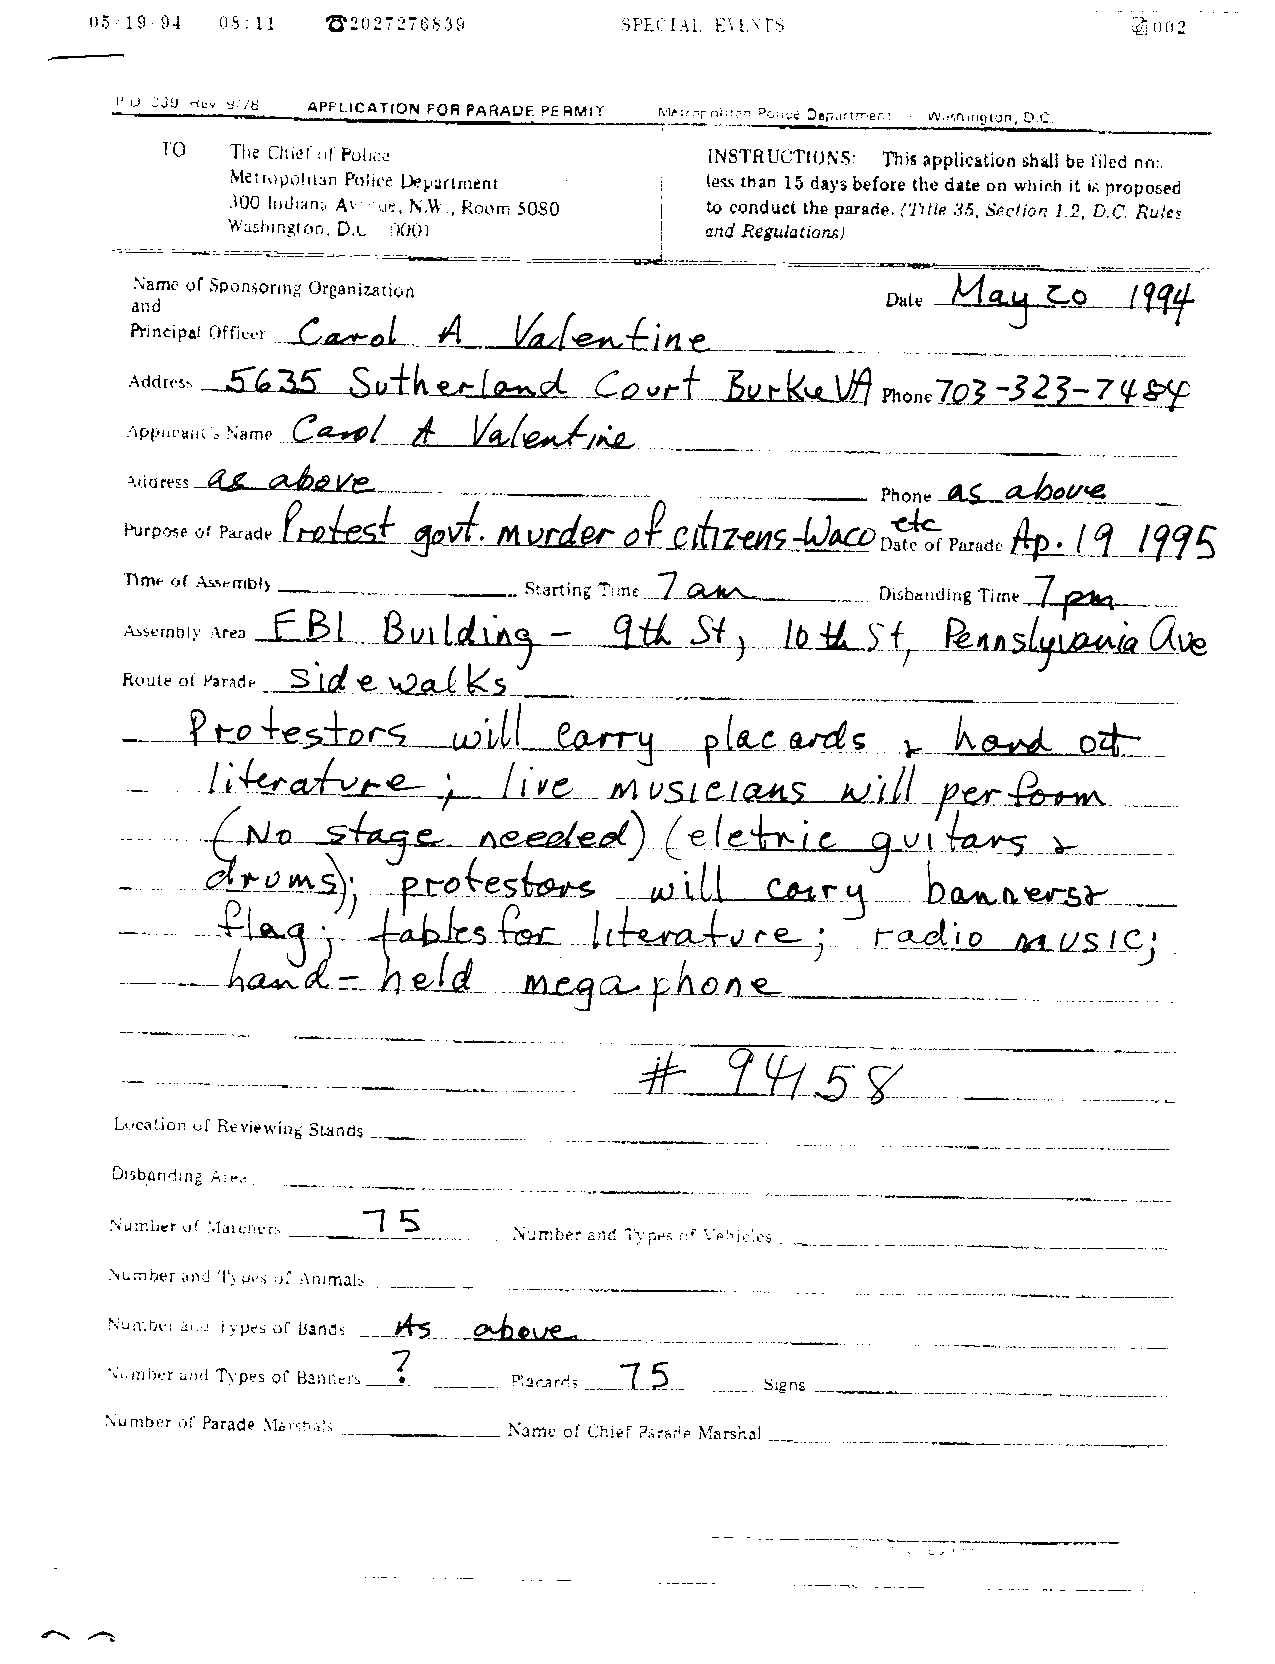 05-19-94 08:11 ☎2027276839 SPECIAL EVENTS 002
P D 339 Rev 9/78 APPLICATION FOR PARADE PERMIT Metropolitan Police Department Washington, D.C.
TO The Chief of Police
Metropolitan Police Department
300 Indiana Avenue, N.W., Room 5080
Washington, D.C. 0001
INSTRUCTIONS: This application shall be filed not
less than 15 days before the date on which it is proposed
to conduct the parade. (Title 35, Section 1.2, D.C. Rules
and Regulations)
Name of Sponsoring Organization
and
Date May 20 1994
Principal Officer Carol A Valentine
Address 5635 Sutherland Court Burke VA Phone 703-323-7484
Applicant's Name Carol A Valentine
Address as above Phone as above
Purpose of Parade Protest govt. murder of citizens-Waco etc Date of Parade Ap. 19 1995
Time of Assembly Starting Time 7 am Disbanding Time 7 pm
Assembly Area FBI Building - 9th St, 10th St, Pennslyvania Ave
Route of Parade Sidewalks
Protestors will carry placards & hand out
literature; live musicians will perform
(No stage needed) (eletric guitars &
drums); protestors will carry banners &
flag; tables for literature; radio music;
hand-held megaphone
# 94158
Location of Reviewing Stands
Disbanding Area
Number of Marchers 75 Number and Types of Vehicles
Number and Types of Animals
Number and Types of Bands As above
Number and Types of Banners ? Placards 75 Signs
Number of Parade Marshals Name of Chief Parade Marshal